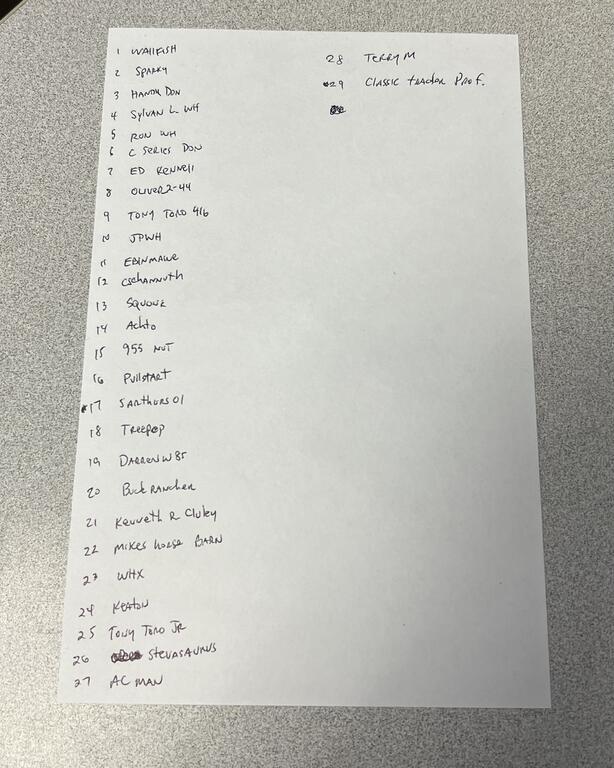 1 WALLFISH
2 SPARKY
3 HANDY DON
4 SYLVAN L WH
5 RON WH
6 C SERIES DON
7 ED KENNELL
8 OLIVER2-44
9 TONY TORO 416
10 JPWH
11 EBINMAINE
12 cschannuth
13 SQUONK
14 Achto
15 955 NUT
16 Pullstart
17 SArthurs01
18 TREEPEP
19 DARRENW85
20 Buck RANCHER
21 Kenneth R Cluley
22 MIKES HORSE BARN
23 WHX
24 KEATON
25 TONY TORO JR
26 STEVASAURUS
27 AC MAN
28 TERRY M
29 Classic tractor Prof.